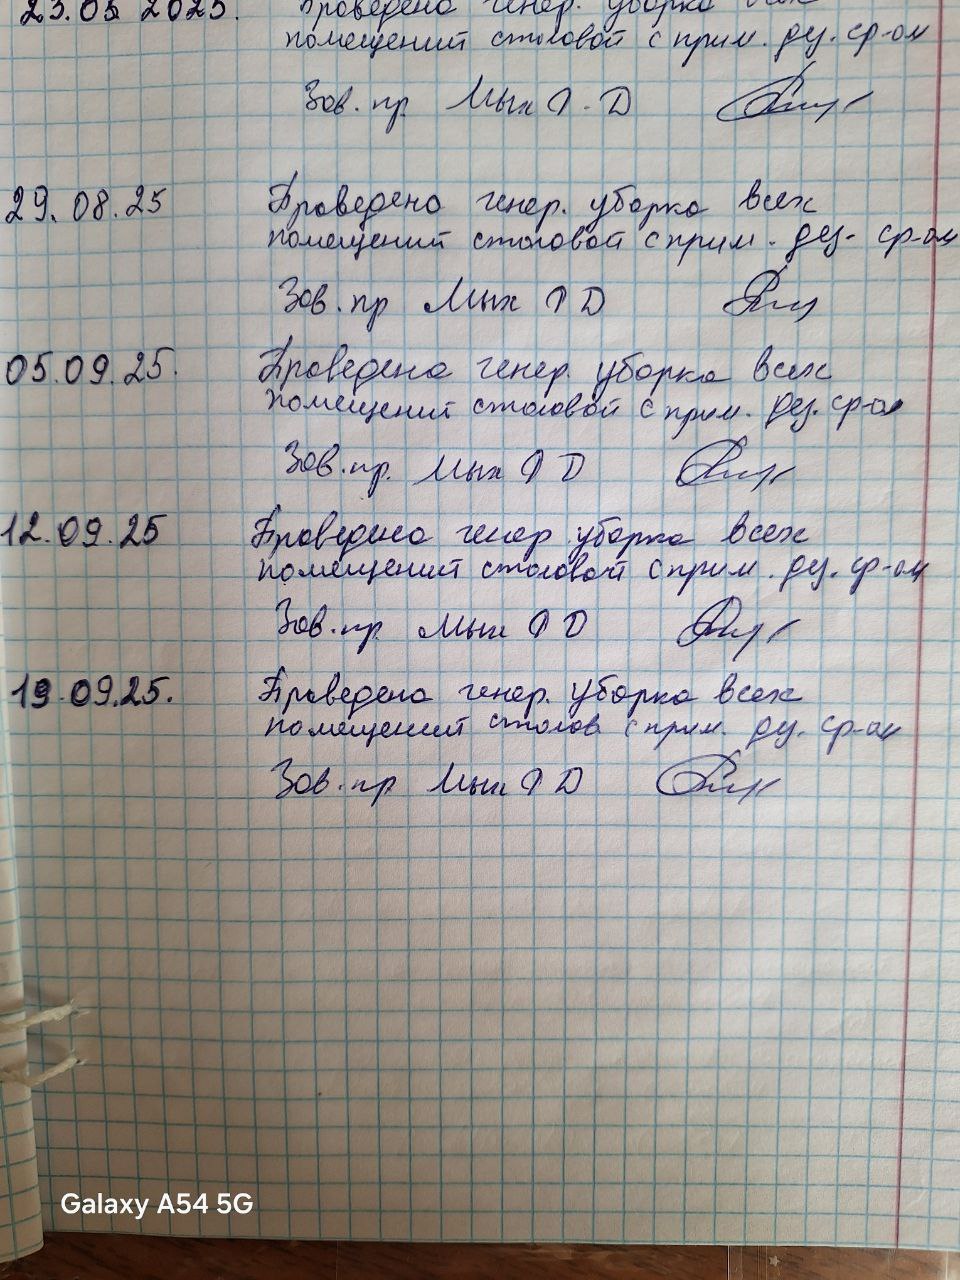 23.05 2025. Проведена генер. уборка всех
помещений столовой с прим. дез. ср-ом
Зав. пр. Мых Ф. Д
29.08.25 Проведена генер. уборка всех
помещений столовой с прим. дез. ср-ом
Зав. пр Мых Ф Д
05.09.25. Проведена генер. уборка всех
помещений столовой с прим. дез. ср-ом
Зав. пр. Мых Ф Д
12.09.25 Проведена генер уборка всех
помещений столовой с прим. дез. ср-ом
Зав. пр. Мых Ф Д
19.09.25. Проведена генер. уборка всех
помещений столов. с прим. дез. ср-ом
Зав. пр Мых Ф Д
Galaxy A54 5G